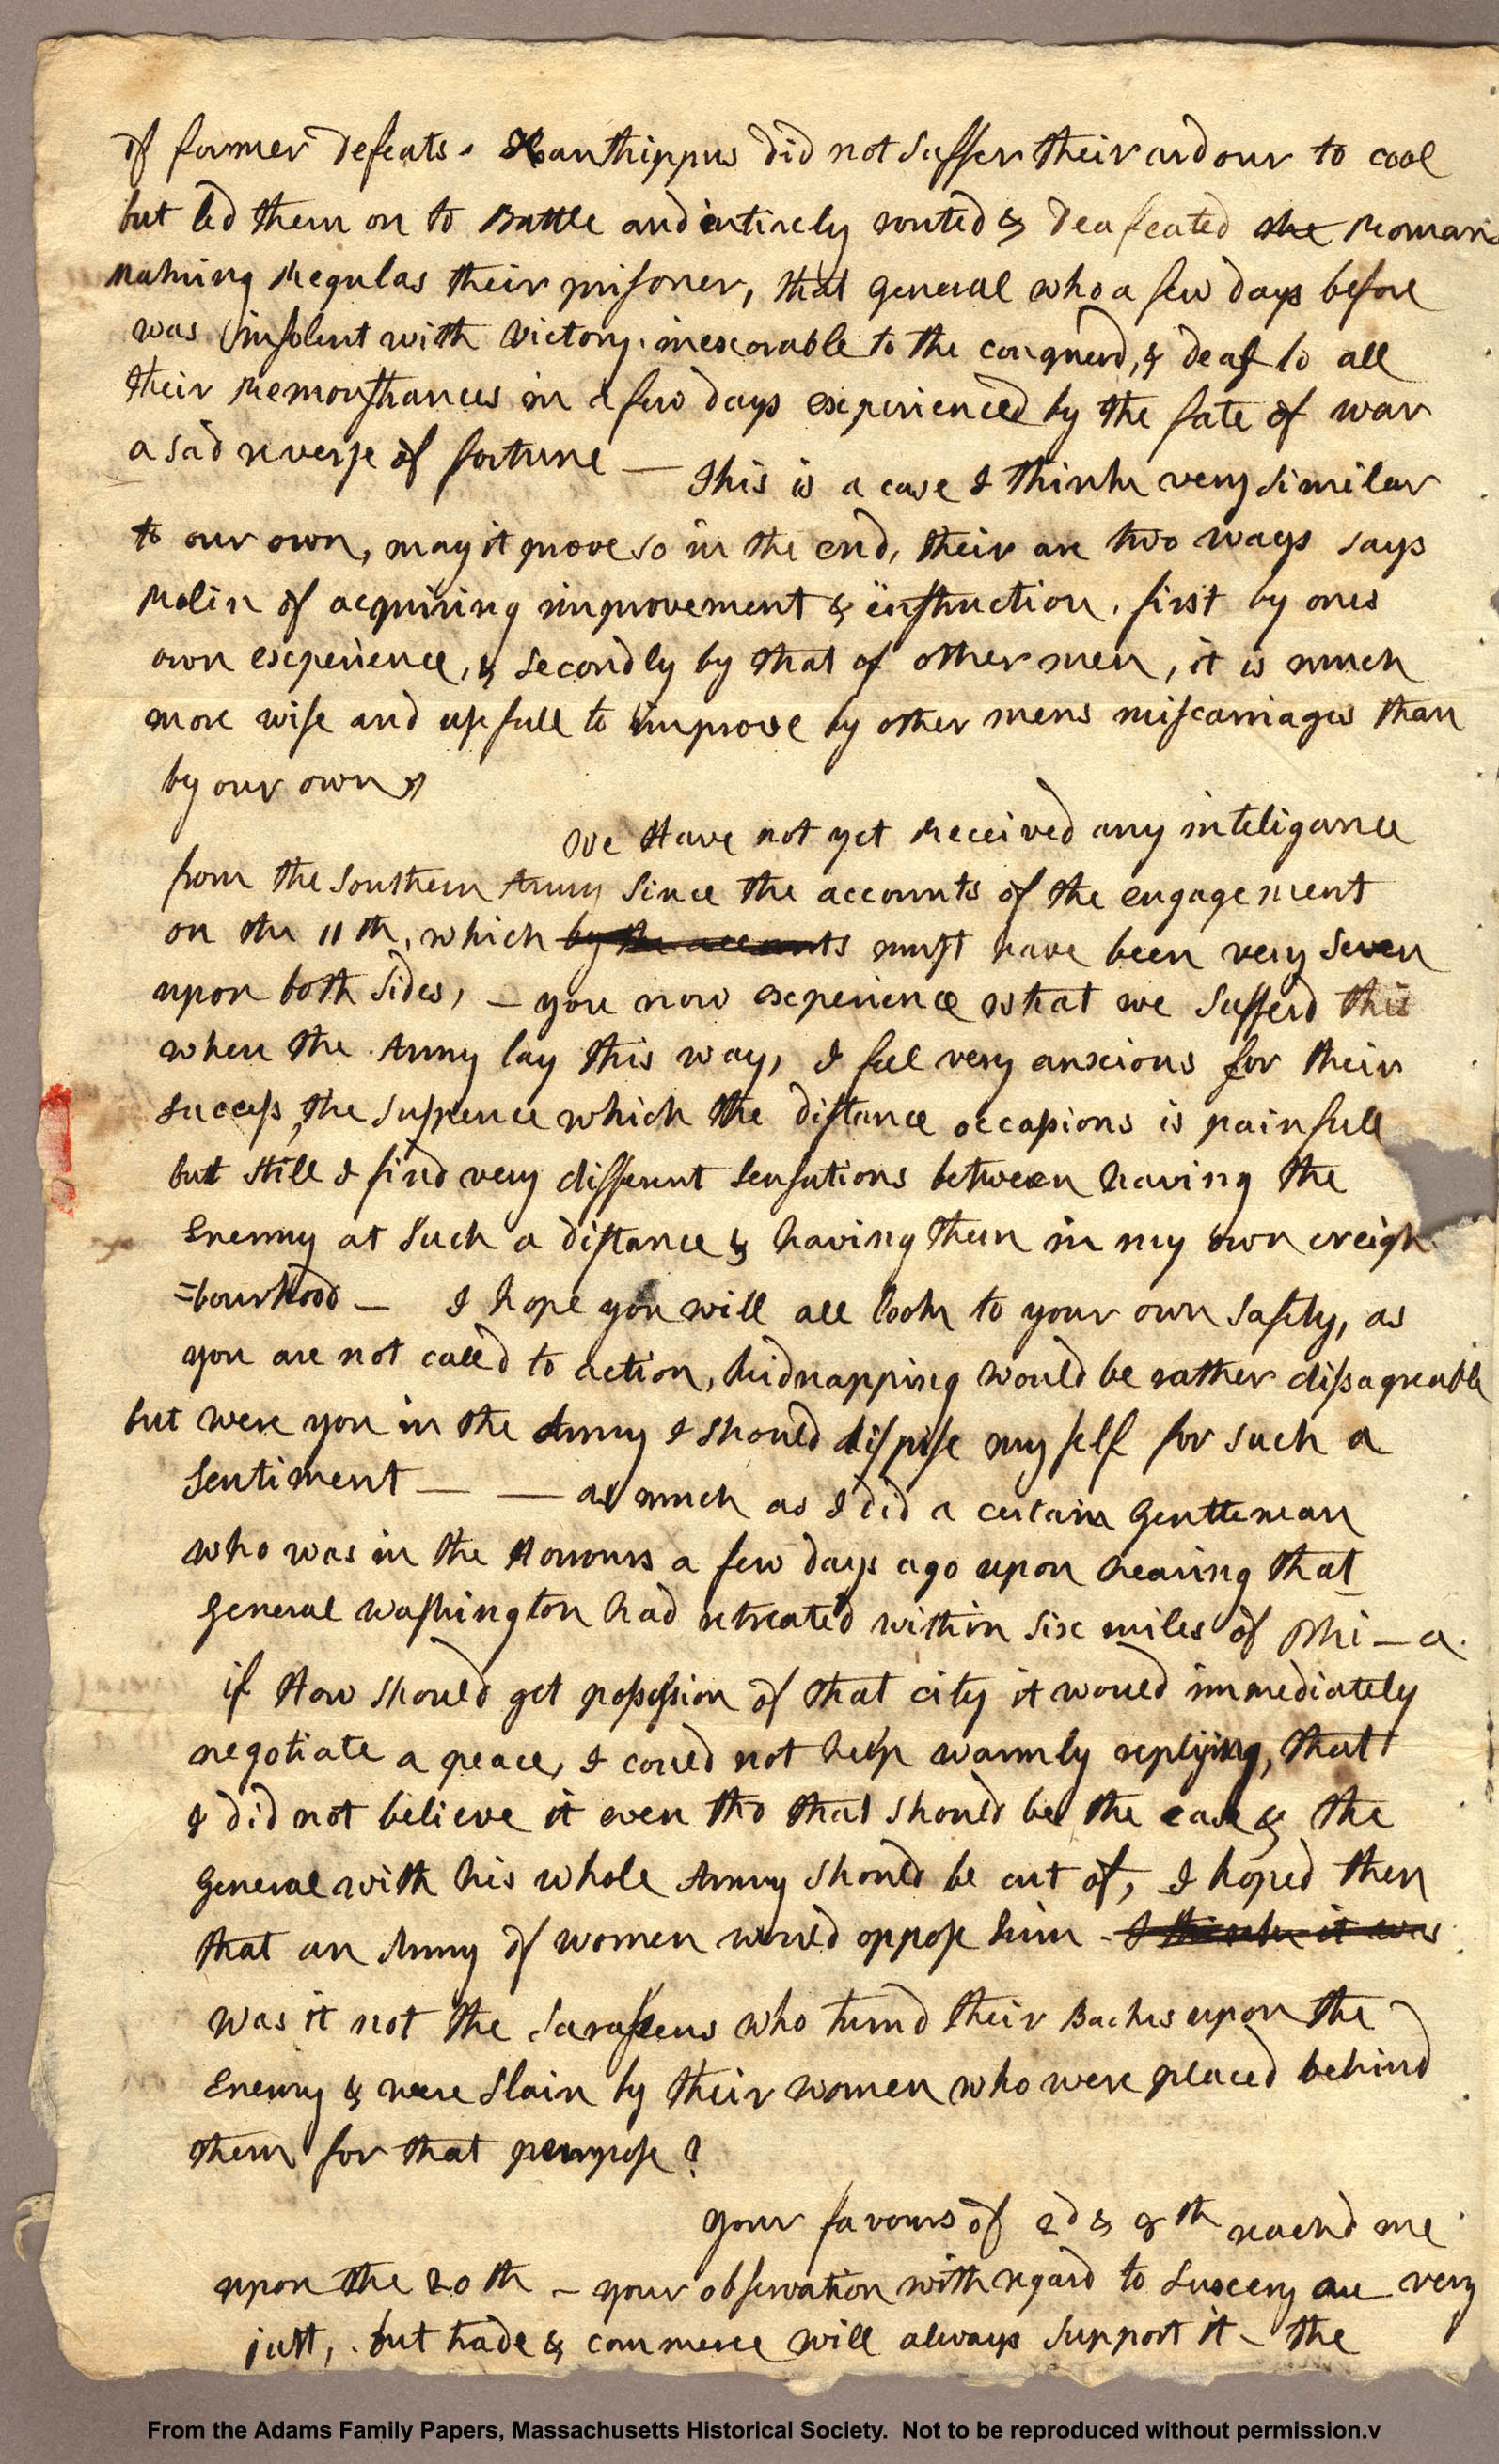 of former defeats. Xanthippus did not suffer their ardour to cool
but led them on to Battle and intirely routed & deafeated the Romans
making Regulas their prisoner, that General who a few days before
was insolent with victory, inexorable to the conquerd, & deaf to all
their Remonstrances in a few days experienced by the fate of war
a sad reverse of fortune —
This is a case I think very similar
to our own, may it prove so in the end, their are two ways says
Rolin of acquiring improvement & instruction, first by ones
own experience, & secondly by that of other men, it is much
more wise and usefull to improve by other mens miscarriages than
by our own"
We Have not yet Received any inteligance
from the Southern Army Since the accounts of the engagement
on the 11 th, which by the accounts must have been very Severe
upon both Sides, — you now experience what we Sufferd
when the Army lay this way, I feel very anxious for their
Success, the Suspence which the distance occasions is painfull
but still I find very different sensations between having the
Enemy at Such a distance & having them in my own neigh
=bourhood — I hope you will all look to your own Safety, as
you are not calld to action, kidnapping would be rather dissagreable
but were you in the Army I should dispise myself for such a
Sentiment — — as much as I did a certain Gentleman
who was in the Horrours a few days ago upon hearing that
General Washington had retreated within six miles of Phi—a.
if How should get possession of that city it would immediately
negotiate a peace, I could not help warmly replying, that
I did not believe it even tho that should be the case & the
General with his whole Army should be cut of, I hoped then
that an Army of women would oppose him - I think it was
was it not the Sarassens who turnd their Backs upon the
Enemy & were slain by their women who were placed behind
them for that purpose?
your favours of 2d & 8th reachd me
upon the 20th — your observation with regard to Luxery are very
just, but trade & commerce will always support it — the
From the Adams Family Papers, Massachusetts Historical Society. Not to be reproduced without permission.v